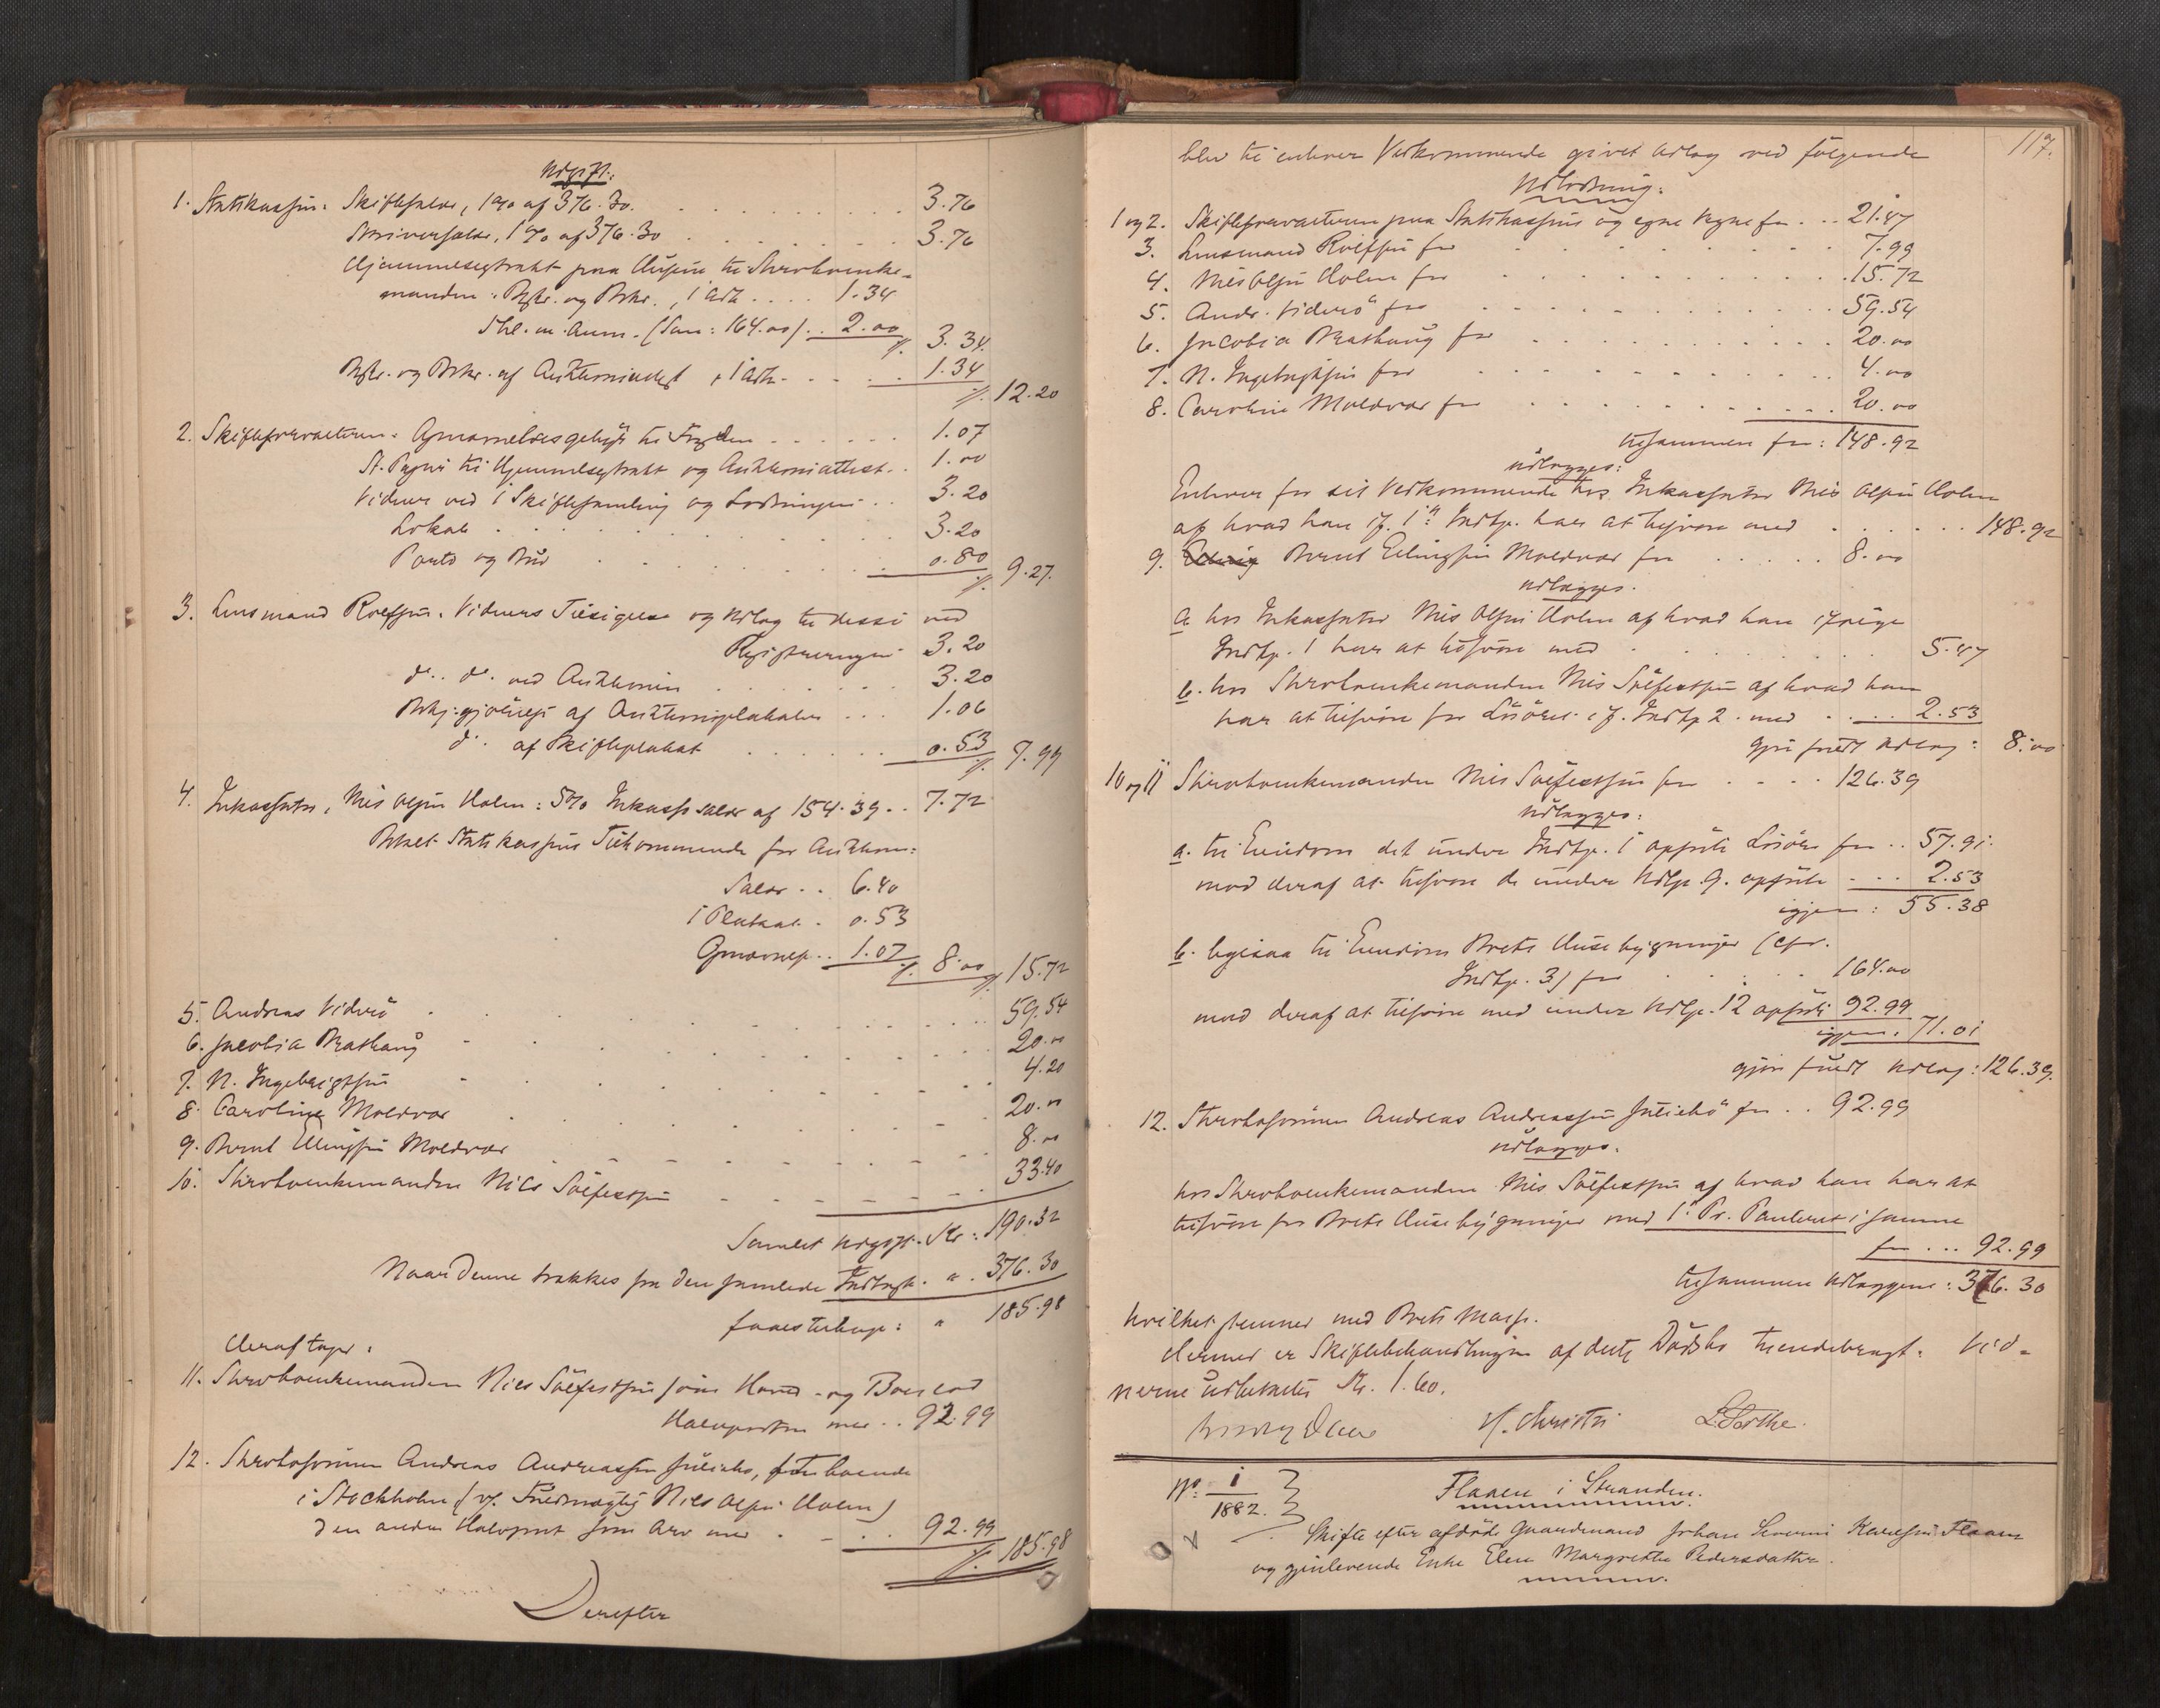 Udgift:
1. Statskassen: Skiftesalær, 1% af 376.30. 3.76
Skriversalær, 1% af 376.30 3.76
Hjemmelsextrakt paa Husene til Skrobvenke-
manden: Beskr. og Bekr., 1 Ark .... 1.34
Thl. m. Anm. (Sum: 164.00) .. 2.00 /. 3.34.
Beskr. og Bekr. af Auktionsudsk. 1 Ark. 1.34
/. 12.20
2. Skifteforvalteren: Gjennemelsesgebyr til Fogden 1.07
St. Papir til Hjemmelsextrakt og Auktionsattest. 1.00
Vidner ved 1 Skiftesamling og Lodningen .. 3.20
Lokale 3.20
Porto og Bud 0.80
/. 9.27.
3. Lensmand Rolfsen: Vidners Tilsigelse og Udlæg til disse ved
Registreringen 3.20
do. do. ved Auktionen 3.20
Bekj:gjørelse af Auktionsplakaten ... 1.06
do. af Skifteplakat 0.53
/. 7.99
4. Inkassator, Nils Olsen Holm: 5% Inkassosalær af 154.39 .. 7.72
Betalt Statskassens Tilkommende for Auktion:
Salær .. 6.40
1 Plakat. 0.53
.. 1.07 /. 8.00 /. 15.72
5. Andreas Viderö 59.54
6. Jacobia Brathaug 20.00
7. N. Ingebrigtsen 4.20
8. Caroline Moldvær 20.00
9. Bernt Ellingsen Moldvær 8.00
10. Skrobvenkemanden Nils Sölfestsen 33.40
Samlet Udgift. Kr: 190.32
Naar denne trækkes fra den samlede Indtægt. " 376.30
faaes tilbage: " 185.98
Heraf tager:
11. Skrobvenkemanden Nils Sölfestsen som Hoved- og Boeslod
Halvparten med .. 92.99
12. Skrobsønnen Andreas Andreassen Juliebø, boende
i Stockholm (v. Fuldmægtig Nils Olsen Holm)
den anden Halvpart som Arv med 92.99
/. 185.98
Derefter
117.
blev til enhver Vedkommende givet Udlæg ved følgende
Udlodning:
1 og 2. Skifteforvalteren paa Statskassens og egne Vegne for. .. 21.47
3. Lensmand Rolfsen for 7.99
4. Nils Olsen Holm for 15.72
5. Andr. Viderö for 59.54
6. Jacobia Brathaug for 20.00
7. N. Ingebrigtsen for 4.00
8. Caroline Moldvær for 20.00
tilsammen for: 148.92
udlægges:
Enhver for sit Vedkommende hos Inkassator Nils Olsen Holm
af hvad han if. 1ste Indtp. har at tilsvare med 148.92
9. Bernt Ellingsen Moldvær for 8.00
udlægges.
a hos Inkassator Nils Olsen Holm af hvad han ifølge
Indtp. 1 har at tilsvare med 5.47
b. hos Skrobvenkemanden Nils Sölfestsen af hvad han
har at tilsvare for Lösöre if. Indtp 2. med 2.53
gjør fuldt Udlæg: 8.00
10 og 11 Skrobvenkemanden Nils Sölfestsen for 126.39
udlægges:
a. til Eiendom det under Indtp. 1 opførte Lösöre for .. 57.91.
mod deraf at tilsvare de under Udlp. 9. opførte 2.53
igjen: 55.38
b. ligesaa til Eiendom Boets Husebygninger (cfr.
Indtp. 3) for 164.00
mod deraf at tilsvare med under Udlp. 12 opførte 92.99
igjen: 71.01
gjør fuldt Udlæg: 126.39.
12. Skrobsønnen Andreas Andreassen Juliebö for .. 92.99
udlægges.
hos Skrobvenkemanden Nils Sölfestsen af hvad han har at
tilsvare for Boets Husebygninger med 1. Pr. Panteret i samme
for ... 92.99
tilsammen Udlæggene: 376.30
hvilket stemmer med Boets Masse.
Hermed er Skiftebehandlingen af dette Dødsbo tilendebragt. Vid-
nerne udbetaltes Kr. 1.60.
H. Christie
No. 1/1882.
Flaaen i Stranden.
Skifte efter afdöde Gaardmand Johan Severin Karlsen Flaaen
og gjenlevende Enke Elen Margrethe Pedersdatter.